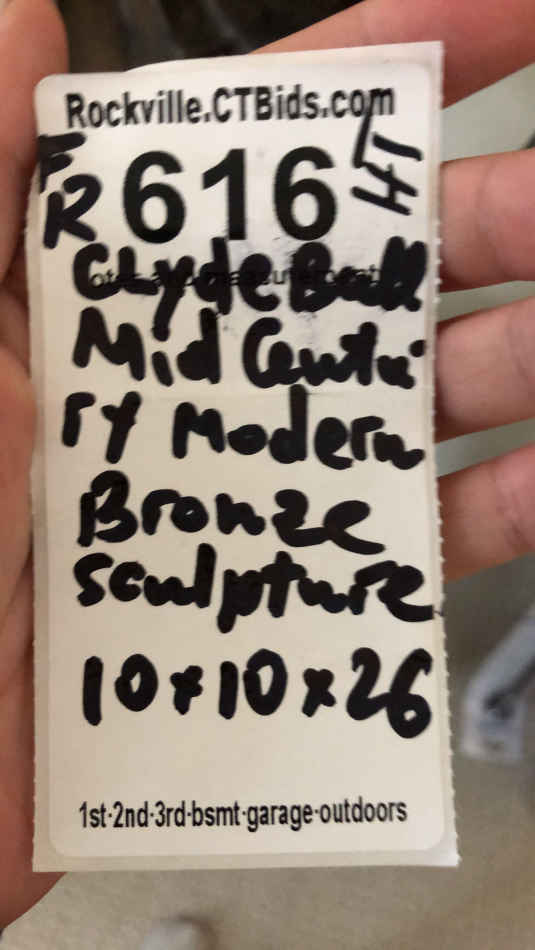 Rockville.CTBids.com
FR 616
Clyde Ball
Mid Centu
ry Modern
Bronze
sculpture
10x10x26
1st·2nd·3rd·bsmt·garage·outdoors